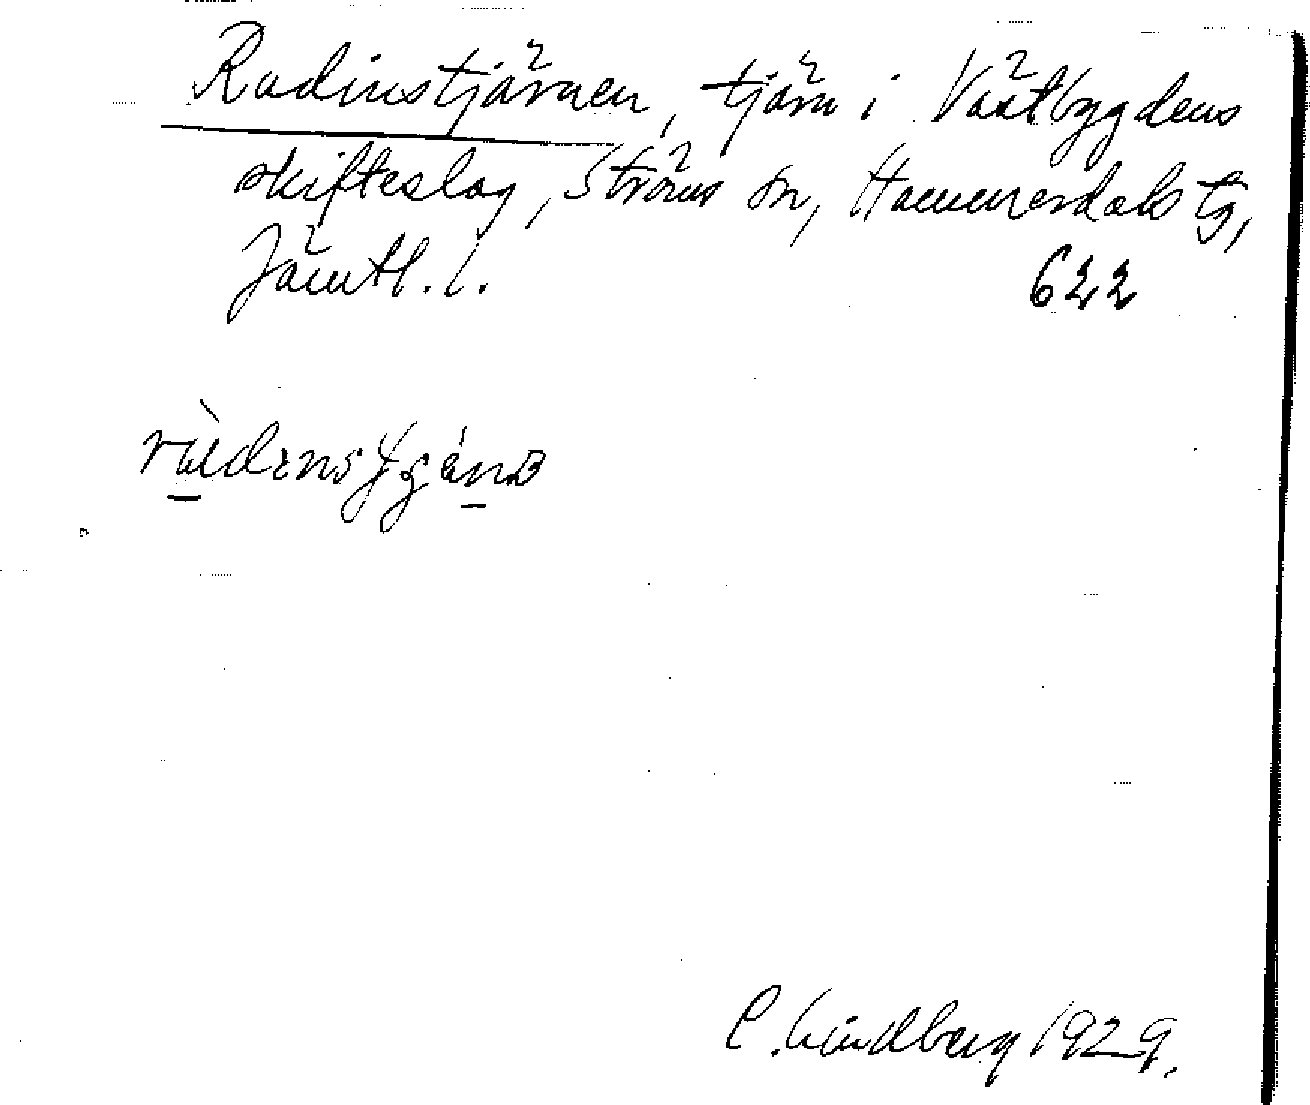 Rudinstjärnen, tjärn i Västbygdens
skifteslag, Ströms sn, Hammerdals tg,
Jämtl. l. 622
C. Lindberg 1929.